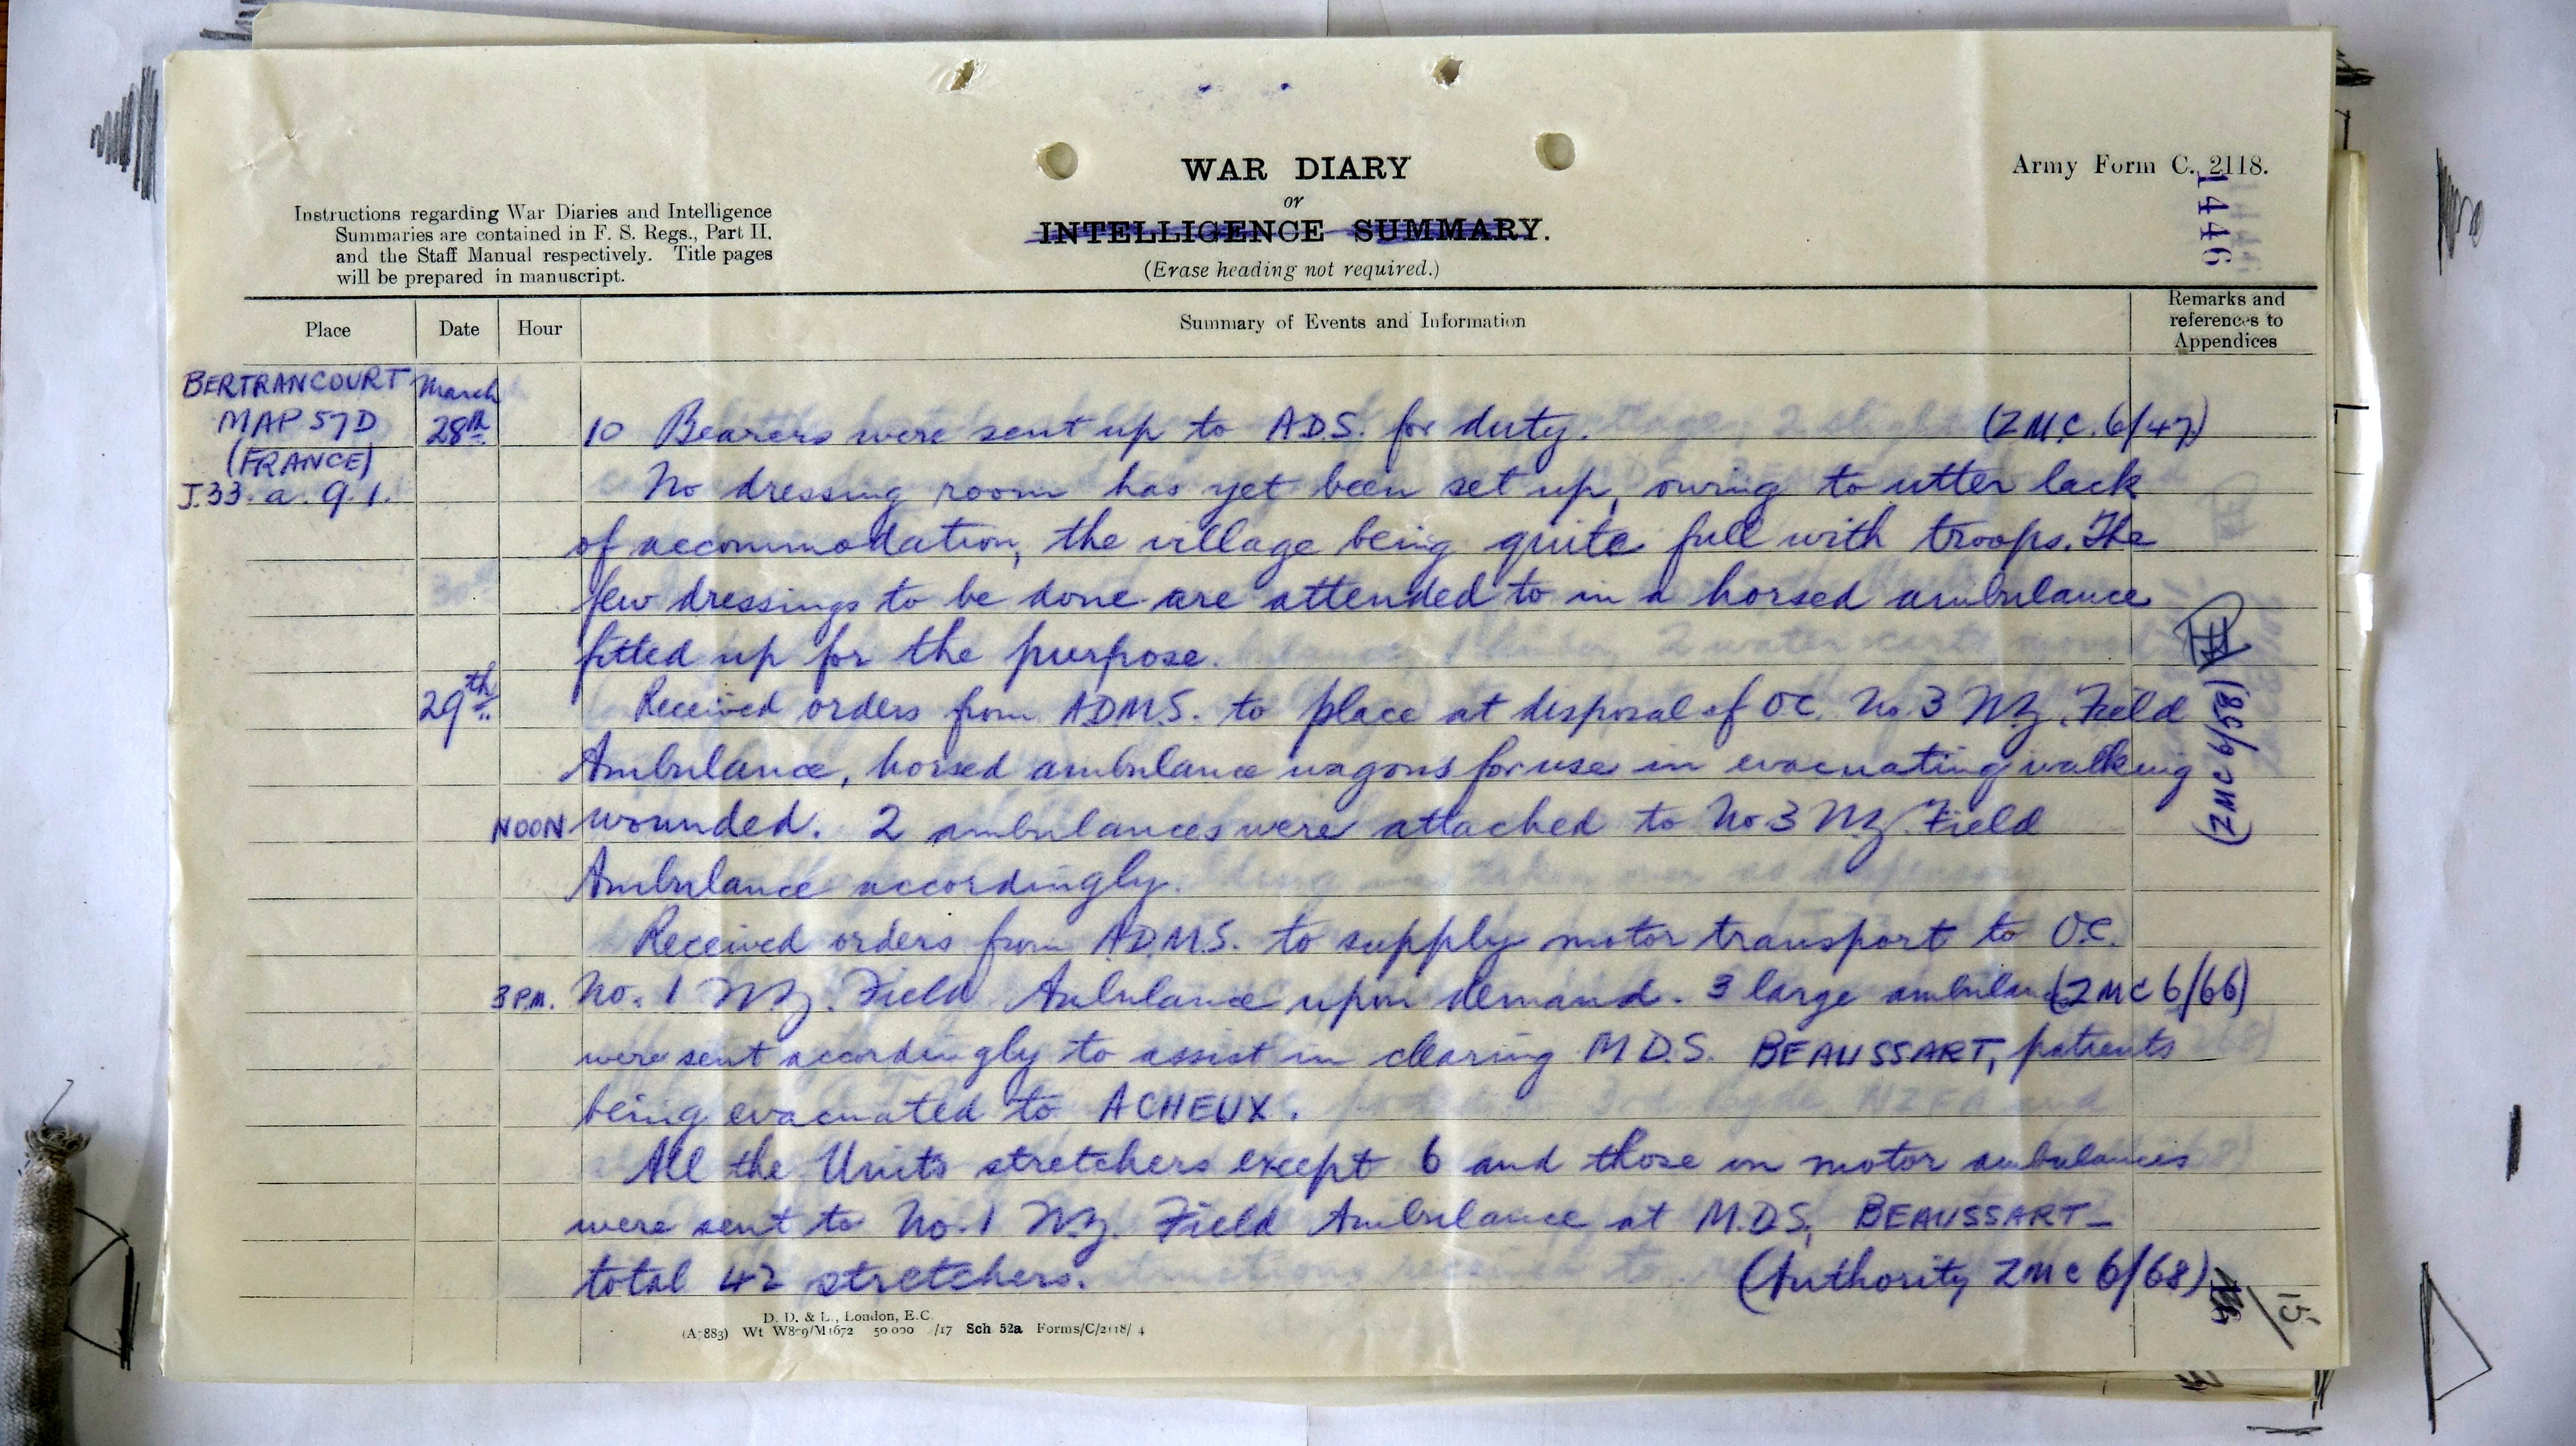 WAR DIARY
or
INTELLIGENCE SUMMARY.
(Erase heading not required.)
Army Form C. 2118.
1446
Instructions regarding War Diaries and Intelligence
Summaries are contained in F. S. Regs., Part II.
and the Staff Manual respectively. Title pages
will be prepared in manuscript.
Place
Date
Hour
Summary of Events and Information
Remarks and
references to
Appendices
BERTRANCOURT
MAP 57D
(FRANCE)
J.33.a.9.1.
March
28th
10 Bearers were sent up to A.D.S. for duty. (ZMC.6/47)
No dressing room has yet been set up, owing to utter lack
of accommodation, the village being quite full with troops. The
few dressings to be done are attended to in a horsed ambulance
fitted up for the purpose.
29th
Received orders from ADMS. to place at disposal of OC. No.3 NZ. Field
Ambulance, horsed ambulance wagons for use in evacuating walking
(ZMC 6/58)
NOON wounded. 2 ambulances were attached to No 3 NZ Field
Ambulance accordingly.
Received orders from A.D.M.S. to supply motor transport to O.C.
3 P.M. No. 1 NZ. Field Ambulance upon demand. 3 large ambulan (ZMC 6/66)
were sent accordingly to assist in clearing M.D.S. BEAUSSART, patients
being evacuated to ACHEUX.
All the Units stretchers except 6 and those in motor ambulances
were sent to No. 1 NZ. Field Ambulance at M.D.S, BEAUSSART-
total 42 stretchers. (Authority ZMC 6/68)
15
D. D. & L., London, E.C.
Sch 52a Forms/C/2118/